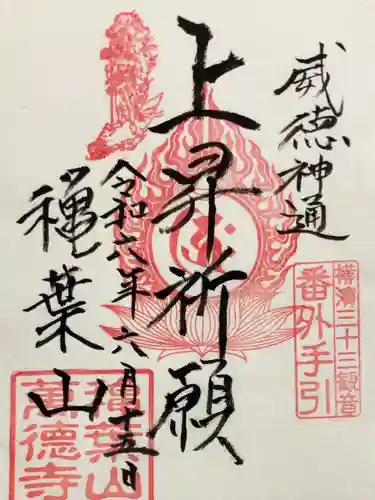 威徳神通
横浜三十三観音
番外手引
上昇祈願
令和六年六月十五日
穐葉山
穐葉山
萬德寺